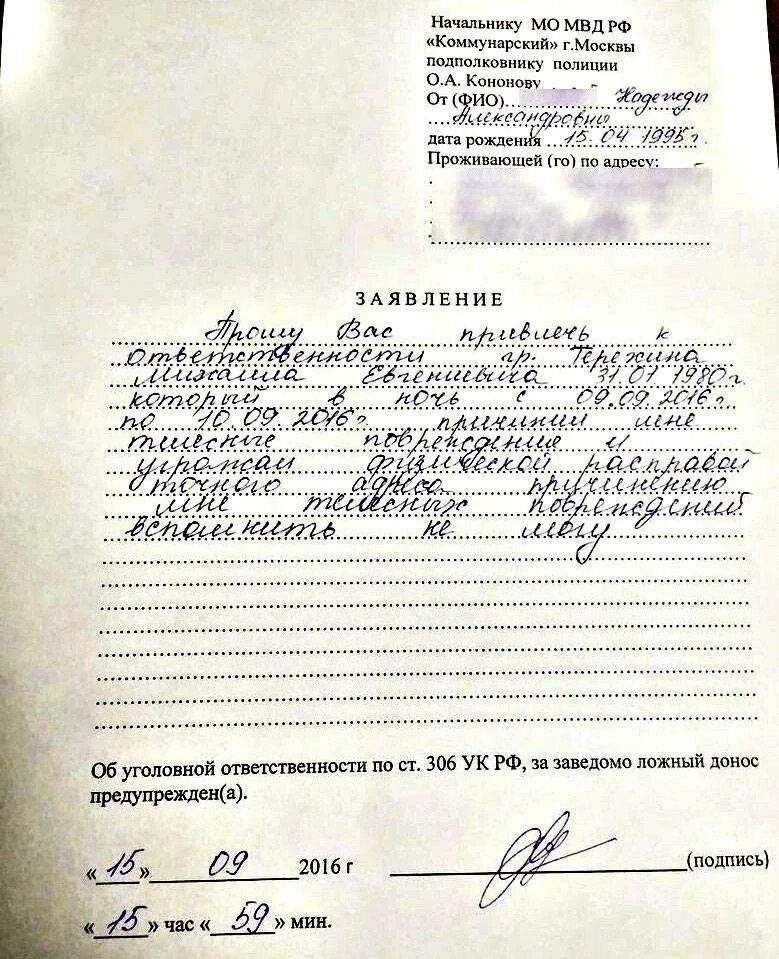 Начальнику МО МВД РФ
«Коммунарский» г.Москвы
подполковнику полиции
О.А. Кононову
От (ФИО) Надежды
Александровны
дата рождения 15.04 1995 г.
Проживающей (го) по адресу:
ЗАЯВЛЕНИЕ
Прошу Вас привлечь к
ответственности гр. Терехина
Михаила Евгениевича 31.01 1980г.
который в ночь с 09.09.2016г.
по 10.09.2016г. причинил мне
телесные повреждения и
угрожал физической расправой
точного адреса причинению
мне телесных повреждений
вспомнить не могу
Об уголовной ответственности по ст. 306 УК РФ, за заведомо ложный донос
предупрежден(а).
«15» 09 2016 г (подпись)
«15» час «59» мин.